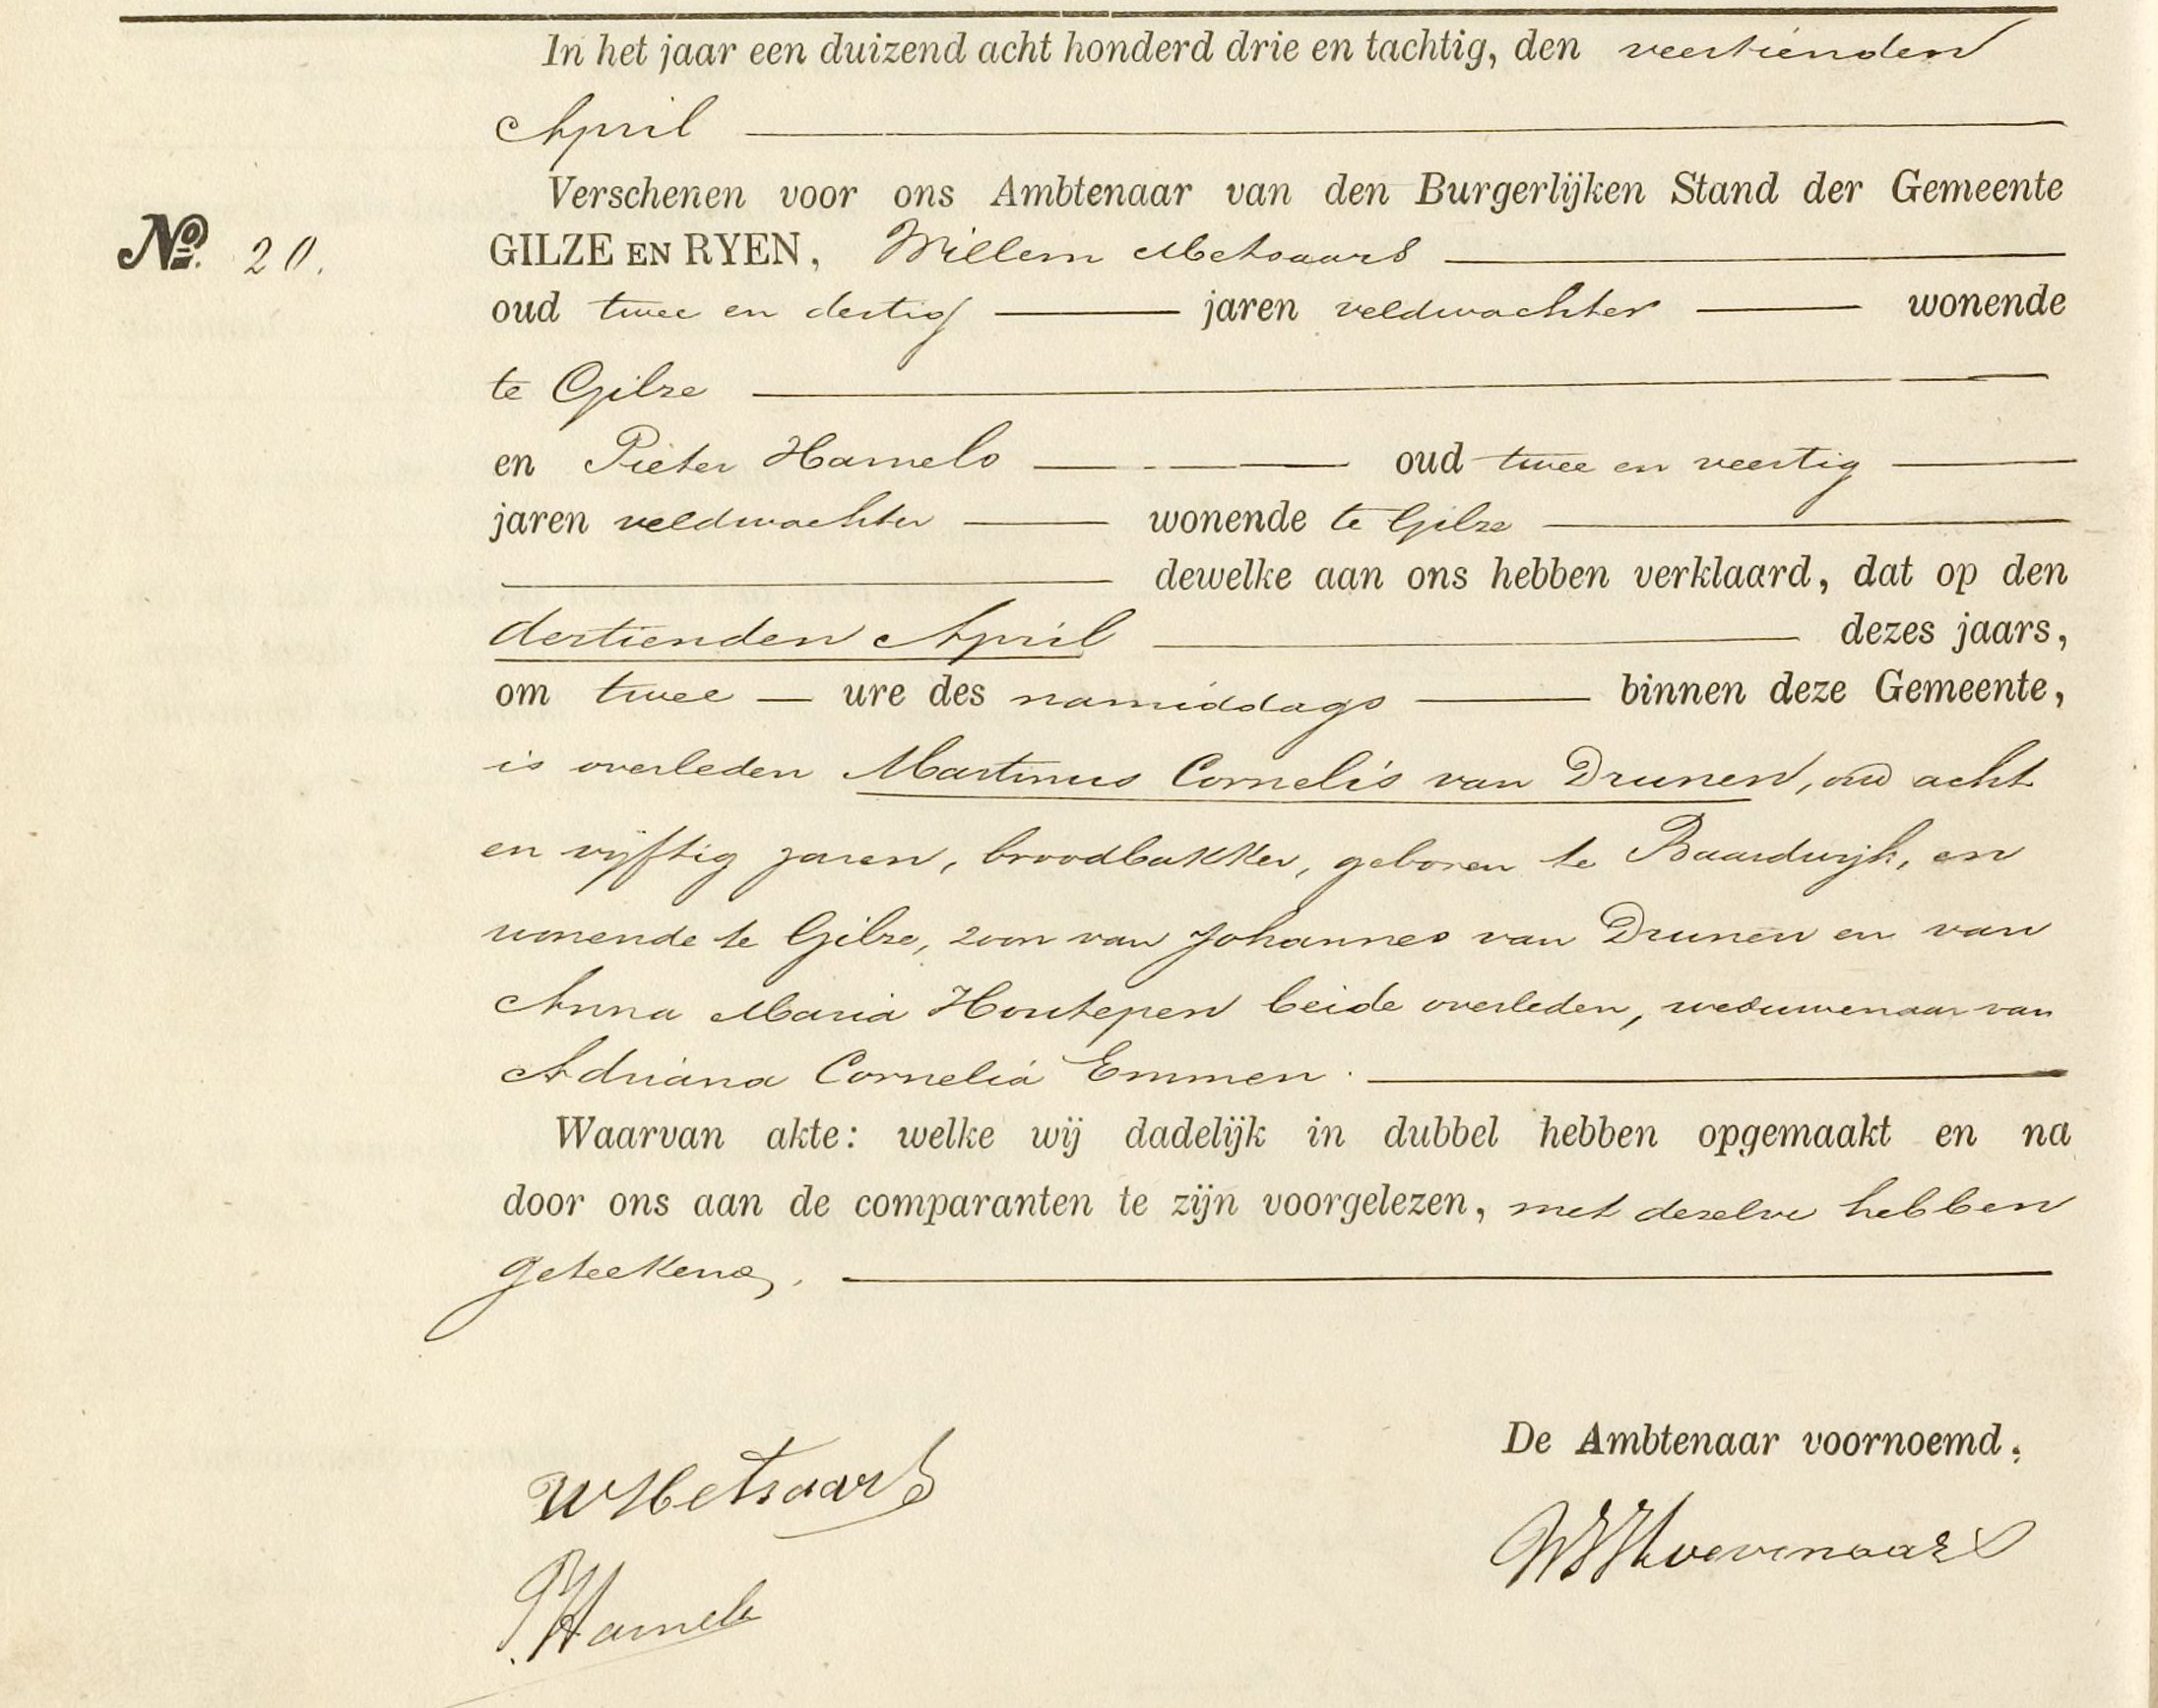 In het jaar een duizend acht honderd drie en tachtig, den veertienden
April
Verschenen voor ons Ambtenaar van den Burgerlijken Stand der Gemeente
No. 20. GILZE EN RYEN, Willem Metsaars
oud twee en dertig jaren veldwachter wonende
te Gilze
en Pieter Hamels oud twee en veertig
jaren veldwachter wonende te Gilze
dewelke aan ons hebben verklaard, dat op den
dertienden April dezes jaars,
om twee ure des namiddags binnen deze Gemeente,
is overleden Martinus Cornelis van Drunen, oud acht
en vijftig jaren, broodbakker, geboren te Baardwijk, en
wonende te Gilze, zoon van Johannes van Drunen en van
Anna Maria Houtepen beide overleden, weduwenaar van
Adriana Cornelia Emmen.
Waarvan akte: welke wij dadelijk in dubbel hebben opgemaakt en na
door ons aan de comparanten te zijn voorgelezen, met dezelve hebben
geteekend.
De Ambtenaar voornoemd.
WMetsaars
PHamels